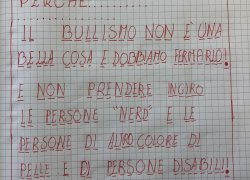 PERCHÈ...........
IL BULLISMO NON È UNA
BELLA COSA E DOBBIAMO FERMARLO!
E NON PRENDERE INGIRO
LE PERSONE "NERD" E LE
PERSONE DI ALTRO COLORE DI
PELLE E DI PERSONE DISABILI!!